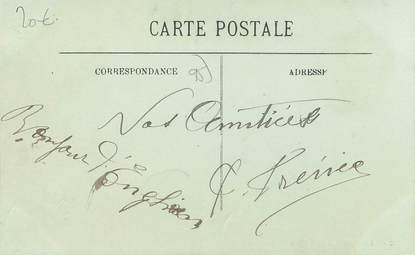 20 €
CARTE POSTALE
CORRESPONDANCE
95
ADRESSE
Nos Amitiés
Bonjour d'
Enghien